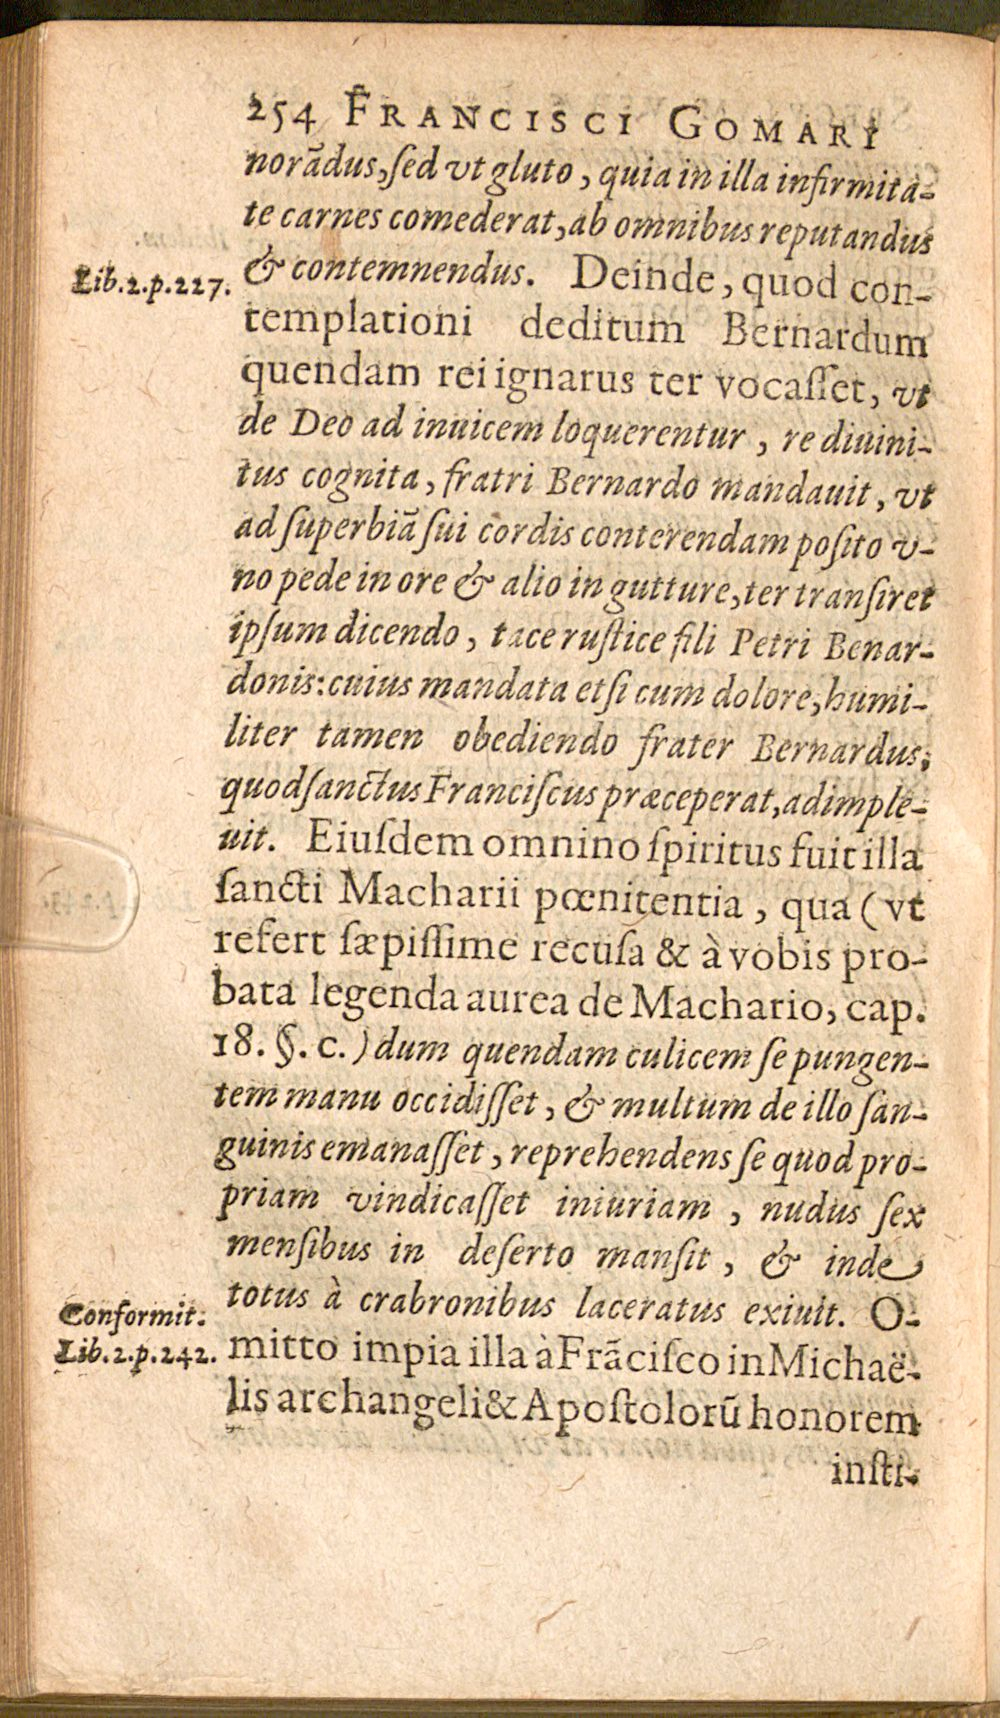 254 FRANCISCI GOMARI
norãdus, ſed vt gluto, quia in illa infirmita-
te carnes comederat, ab omnibus reputandus
Lib.2.p.227. & contemnendus. Deinde, quod con-
templationi deditum Bernardum
quendam rei ignarus ter vocaſſet, vt
de Deo ad inuicem loquerentur, re diuini-
tus cognita, fratri Bernardo mandauit, vt
ad ſuperbiã ſui cordis conterendam poſito v-
no pede in ore & alio in gutture, ter tranſiret
ipſum dicendo, tace ruſtice fili Petri Benar-
donis: cuius mandata etſi cum dolore, humi-
liter tamen obediendo frater Bernardus,
quod ſanctus Franciſcus præceperat, adimple-
uit. Eiuſdem omnino ſpiritus fuit illa
ſancti Macharii pœnitentia, qua (vt
refert ſæpiſſime recuſa & à vobis pro-
bata legenda aurea de Machario, cap.
18. §. c.) dum quendam culicem ſe pungen-
tem manu occidiſſet, & multum de illo ſan-
guinis emanaſſet, reprehendens ſe quod pro-
priam vindicaſſet iniuriam, nudus ſex
menſibus in deſerto manſit, & inde
totus à crabronibus laceratus exiuit. O-
Conformit.
Lib.2.p.242. mitto impia illa à Frãciſco in Michaë-
lis archangeli & Apoſtolorũ honorem
inſti-